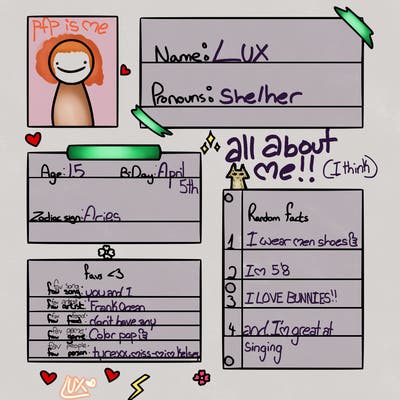 pfp is me
Name: Lux
Pronouns: She/her
all about
me!! (I think)
Age: 15 B-Day: April
5th
Zodiac sign: Aries
Random facts
1 I wear men shoes
2 I'm 5'8
3 I LOVE BUNNIES!!
4 and I'm great at
singing
favs <3
fav song: you and I
fav artist: Frank Ocean
fav food: don't have any
fav game: Color pop
fav people:
fav person:
LUX